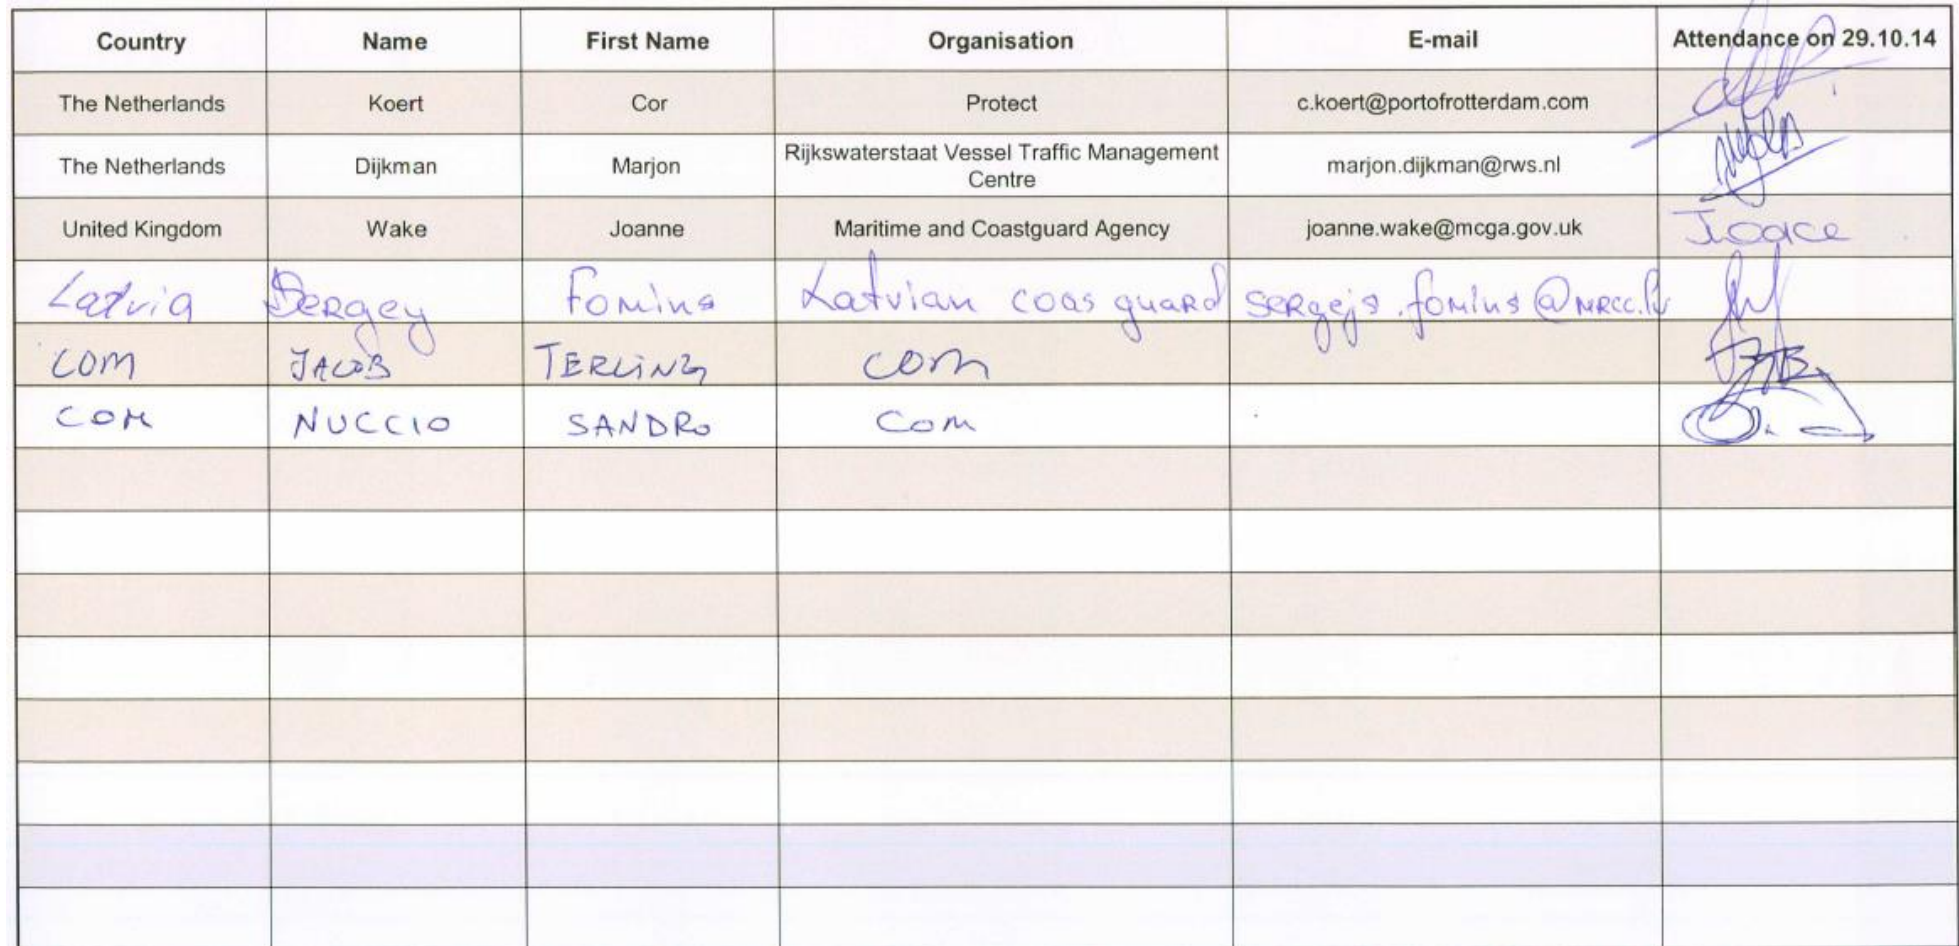 Country Name First Name Organisation E-mail Attendance on 29.10.14
The Netherlands Koert Cor Protect c.koert@portofrotterdam.com
The Netherlands Dijkman Marjon Rijkswaterstaat Vessel Traffic Management
Centre marjon.dijkman@rws.nl
United Kingdom Wake Joanne Maritime and Coastguard Agency joanne.wake@mcga.gov.uk
Latvia Sergey Fomins Latvian coas guard sergejs.fomins@MRCC.lv
COM JACOB TERLING COM
COM NUCCIO SANDRO COM